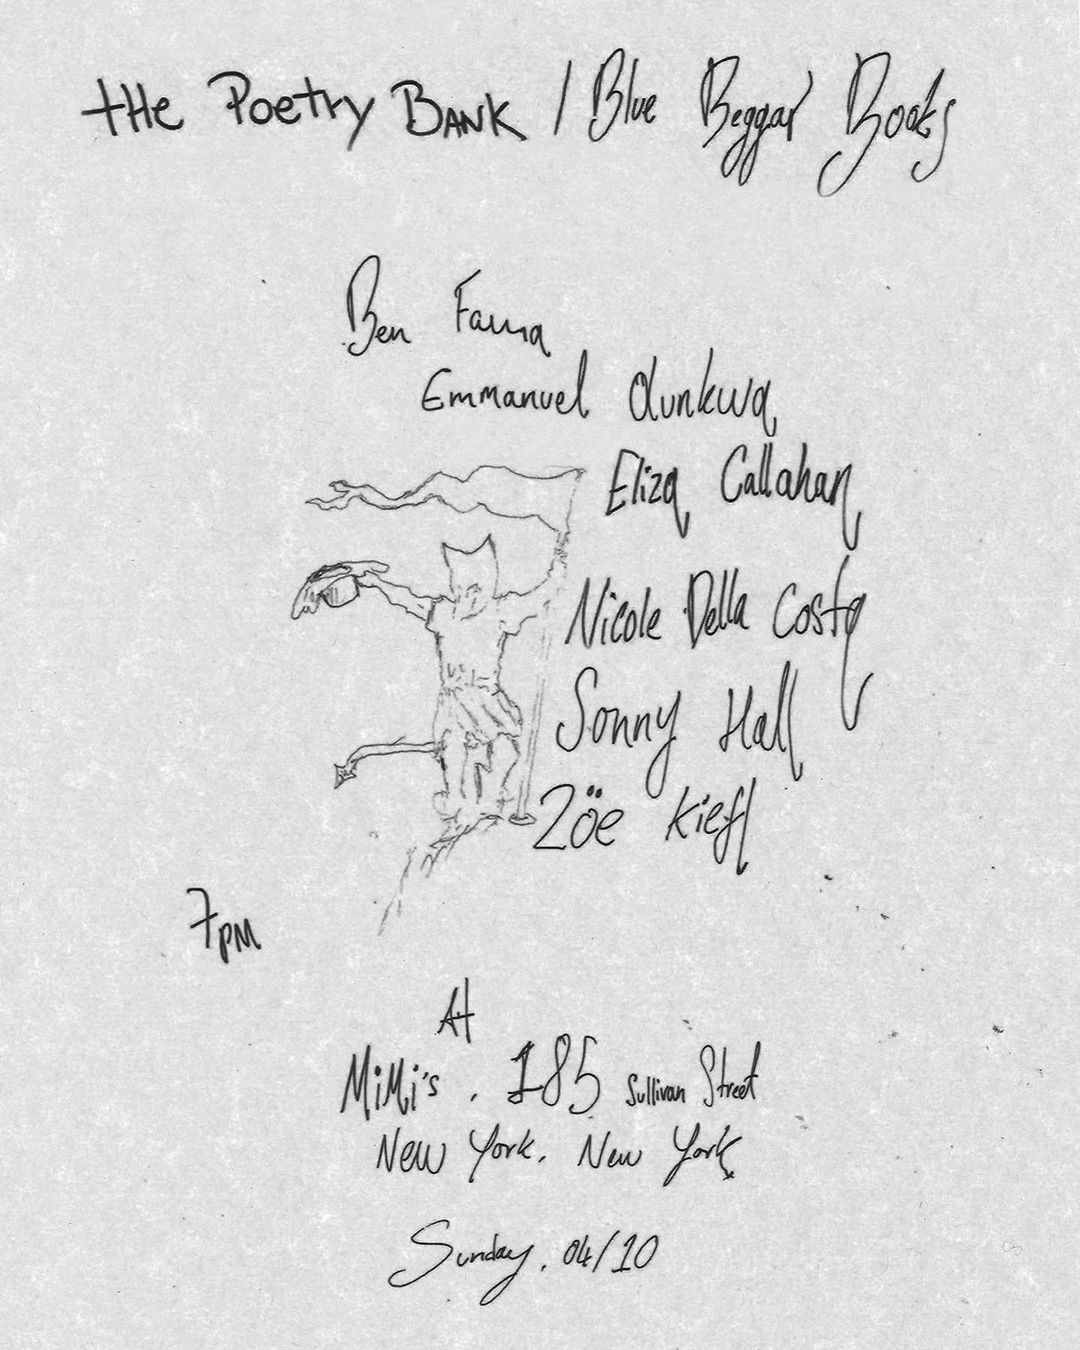 tHe Poetry BANK / Blue Beggar Books
Ben Fama
Emmanuel Olunkwa
Eliza Callahan
Nicole Della Costa
Sonny Hall
Zöe Kiefl
7PM
At
MiMi's . 185 Sullivan Street
New York. New York
Sunday. 04/10